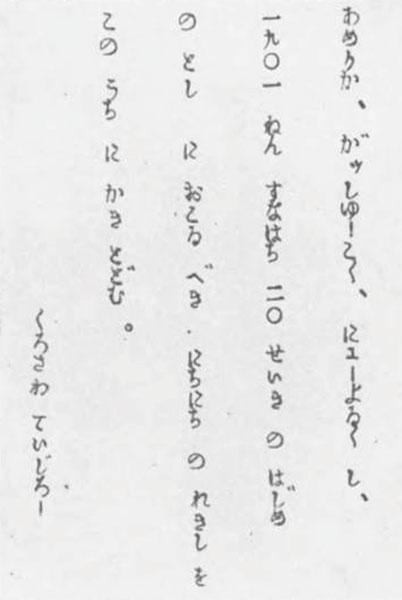 あめりか、がッしゅーこく、にューよるく し、
一九〇一 ねん すなはち 二〇 せいき の はじめ
の とし に おこる べき、にちにち の れきし を
この うち に かき とどむ。
くろさわ ていじろー